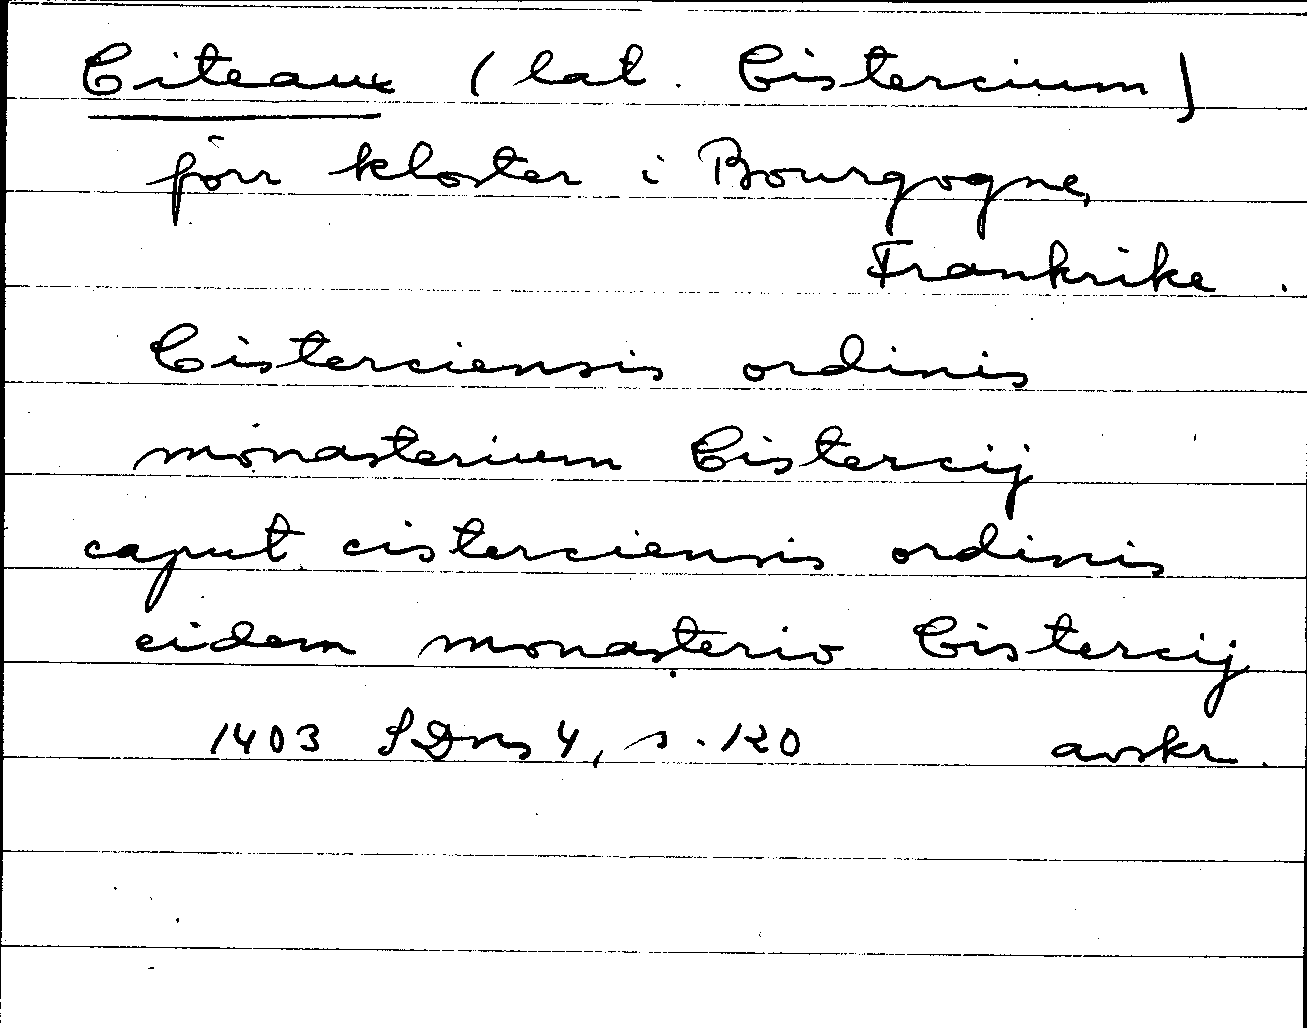 Citeaux (lat. Cistercium)
förr kloster i Bourgogne,
Frankrike.
Cisterciensis ordinis
monasterium Cistercij
caput cisterciensis ordinis
eidem monasterio Cistercij
1403 SDns 4, s. 120 avskr.